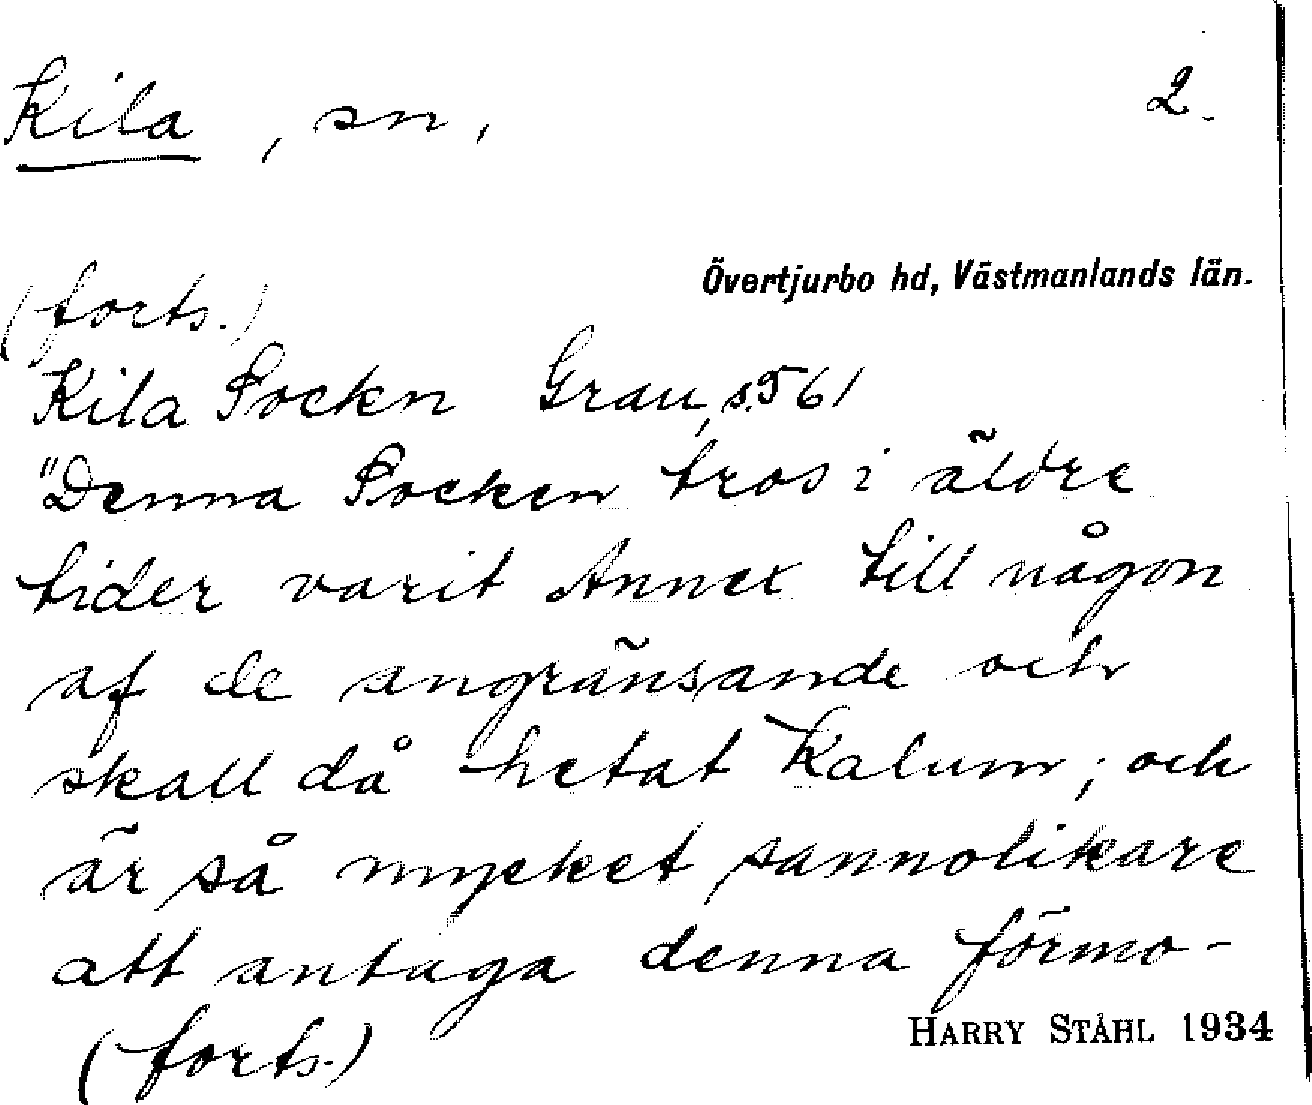 Kila, sn, 2.
Övertjurbo hd, Västmanlands län.
(forts.)
Kila Sockn Grau, s. 561
"Denna Socken tros i äldre
tider varit Annex till någon
af de angränsande och
skall då hetat Kalum; och
är så mycket sannolikare
att antaga denna förmo-
(forts.)
HARRY STÅHL 1934